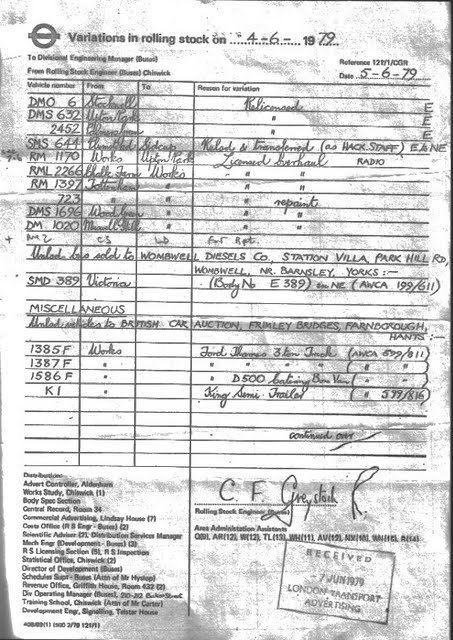 Variations in rolling stock on 4-6- 1979
To Divisional Engineering Manager (Buses)
From Rolling Stock Engineer (Buses) Chiswick
Reference 121/1/CGR
Date 5-6-79
Vehicle number From To Reason for variation
DMO 6 Stockwell Relicensed E
DMS 632 Upton Park " E
2452 " E
SMS 644 Sidcup Relcd & Transferred (as HACK. STAFF) E in NE
RM 1170 Works Upton Park Licensed Overhaul RADIO
RML 2266 Chalk Farm Works " "
RM 1397 Tottenham " " "
723 " " " repaint
DMS 1696 Wood Green " "
DM 1020 Muswell Hill " "
Unlad. bus sold to WOMBWELL DIESELS CO., STATION VILLA, PARK HILL RD,
WOMBWELL, NR. BARNSLEY, YORKS :-
SMD 389 Victoria (Body No E 389) in NE (AWCA 199/611)
MISCELLANEOUS
Unlad. vehicles to BRITISH CAR AUCTION, FRIMLEY BRIDGES, FARNBOROUGH,
HANTS :-
1385 F Works Ford Thames 3 ton Truck (AWCA 599/811)
1387 F " " " " " ( " " )
1586 F " " D500 Catering Box Van ( " " )
K1 " King Semi Trailer ( " 599/816)
continued over
Distribution:-
Advert Controller, Aldenham
Works Study, Chiswick (1)
Body Spec Section
Central Record, Room 34
Commercial Advertising, Lindsay House (7)
Costs Office (R S Engr - Buses) (2)
Scientific Adviser (2), Distribution Services Manager
Mech Engr (Development - Buses) (3)
R S Licensing Section (5), R S Inspection
Statistical Office, Chiswick (2)
Director of Development (Buses)
Schedules Supt - Buses (Attn of Mr Hyslop)
Revenue Office, Griffith House, Room 432 (2)
Div Operating Manager (Buses),
Training School, Chiswick (Attn of Mr Carter)
Development Engr, Signalling, Telstar House
C. F. Greystock
Rolling Stock Engineer (Buses)
Area Administration Assistants
RECEIVED
7 JUN 1979
LONDON TRANSPORT
ADVERTISING